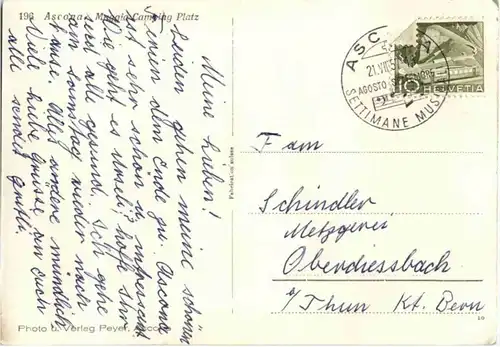 196 Ascona Muggia-Camping Platz
Meine Lieben!
Leider gehen meine schönen
Ferien dem Ende zu. Ascona
ist sehr schön u. imposant
Wie geht es Euch? hoffe Ihr
seid alle gesund. Ich gehe
am Sonntag wieder nach
hause. Alles andere mündlich
Viele liebe Grüsse an euch
alle sendet
Photo u. Verlag Peyer, Ascona
Fabrication suisse
ASCONA
21.VII.5
AGOSTO
SETTIMANE MUSI
10 HELVETIA
Fam
Schindler
Metzgerei
Oberdiessbach
b/Thun Kt. Bern
10